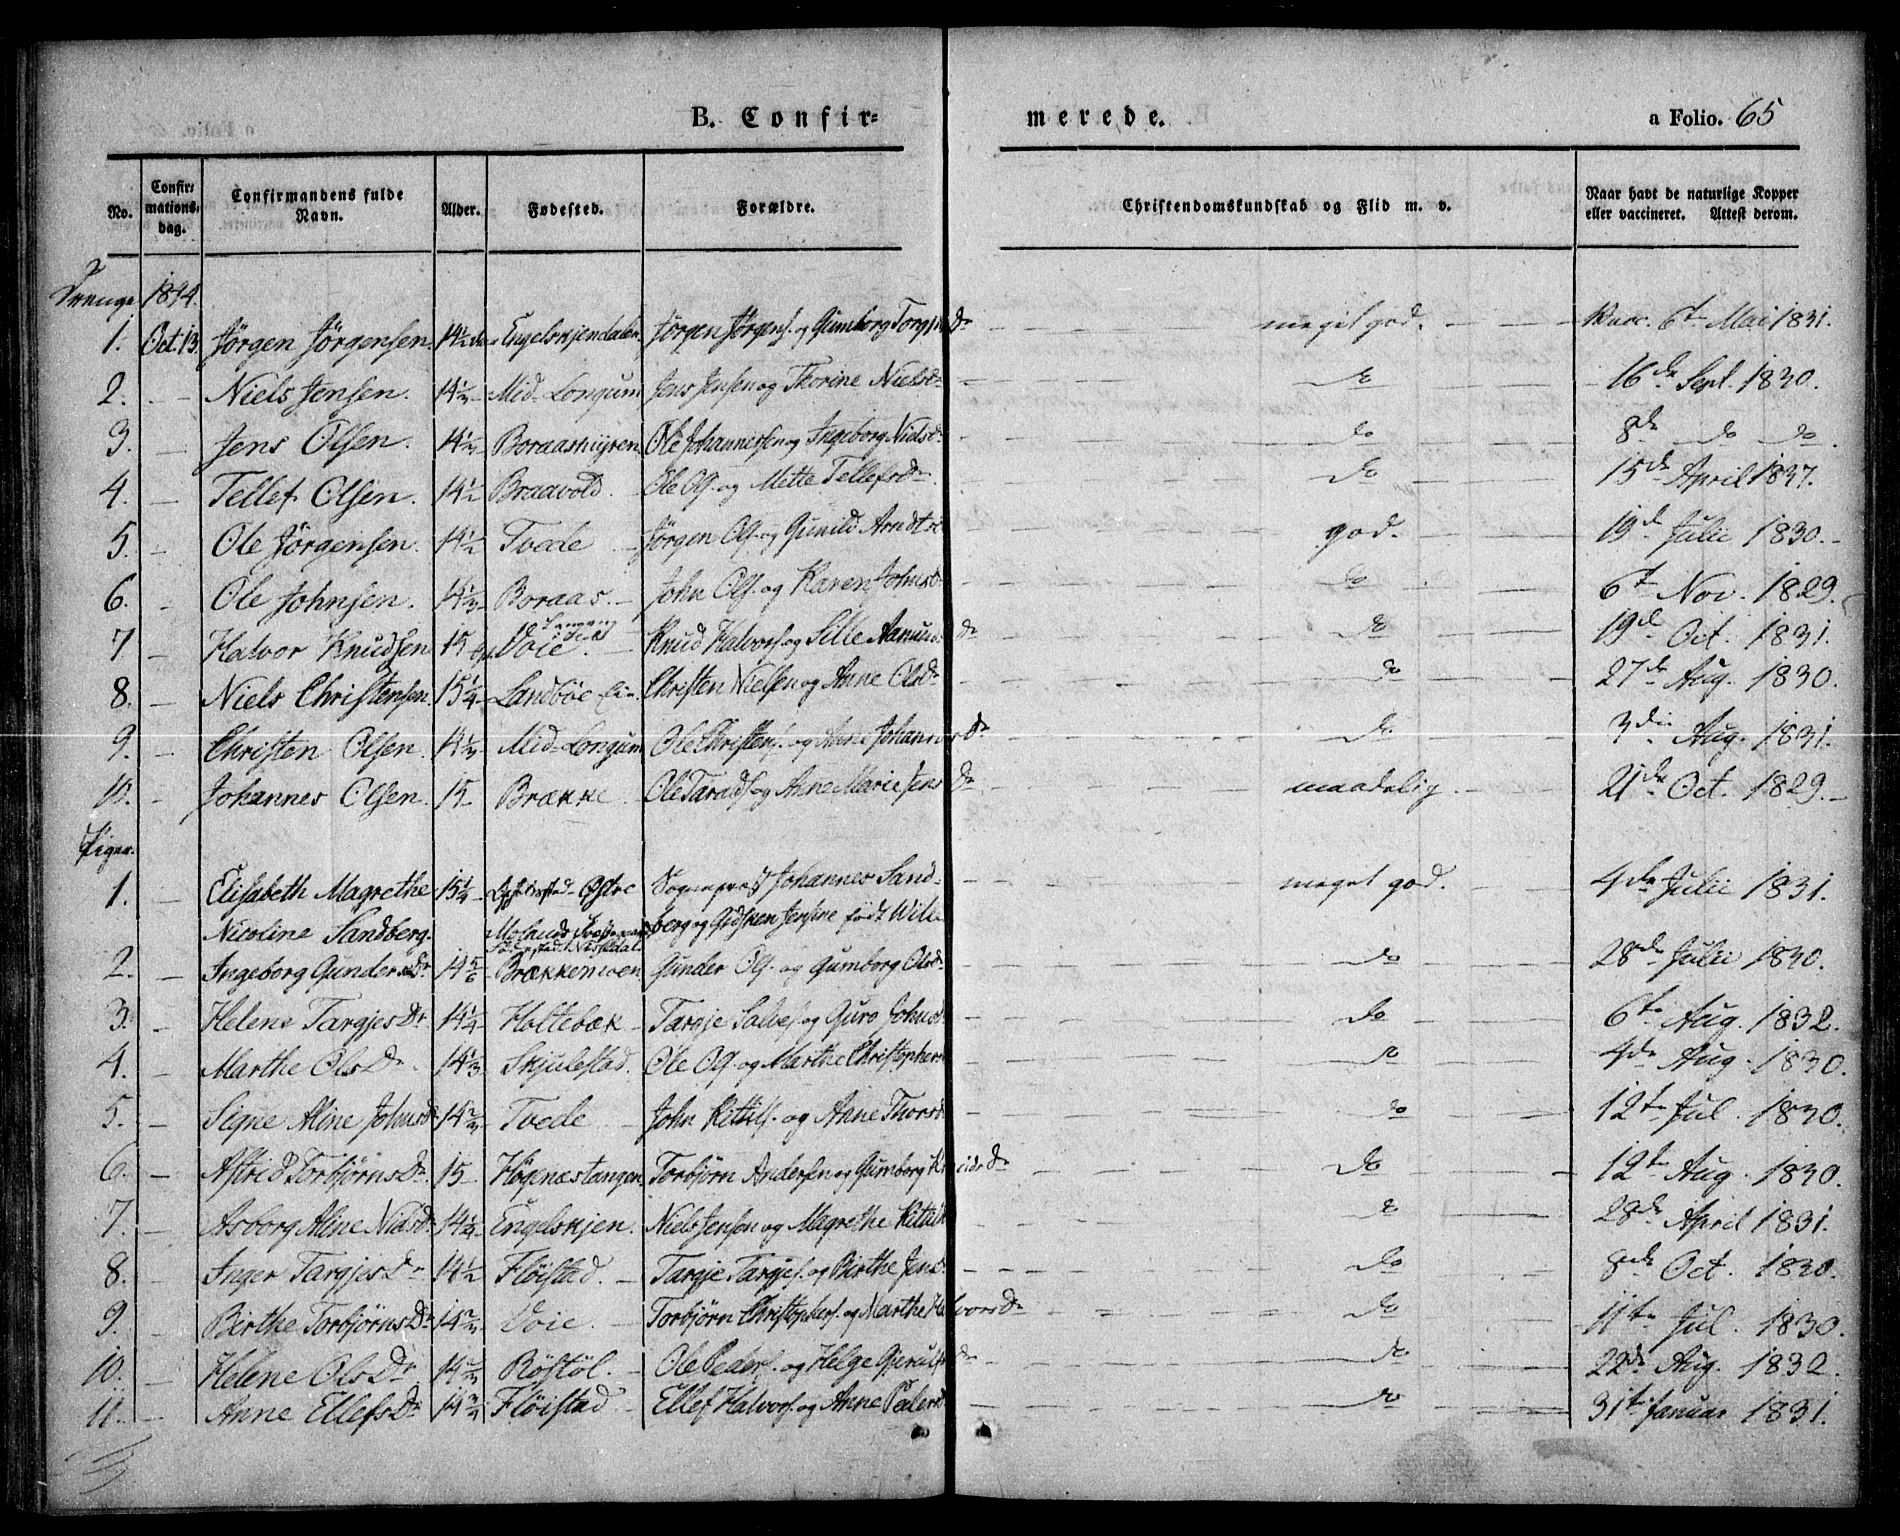 B. Confir=
merede.
a Folio. 65
No.
Confir= mations= dag.
Confirmandens fulde Navn.
Alder.
Fødested.
Forældre.
Christendomskundskab og Flid m. v.
Naar havt de naturlige Kopper eller vaccineret. Attest derom.
Drenge 1844.
1. Oct. 13 Jörgen Jörgensen. 14 1/2 Engelskjendalen Jörgen Jörgens. og Gumborg Torgjus Dr meget god. Vacc. 6te Mai 1831.
2. Niels Jensen. 14 1/2 Mid-Longum Jens Jensen og Thorine Nielsdr do 16de Sept. 1830.
3. Jens Olsen. 14 1/2 Boraasmyren Ole Johannesen og Ingeborg Nielsdr do 8de do do.
4. Tellef Olsen. 14 1/2 Braavold. Ole Ols. og Mette Tellefsdr do 15de April 1837.
5. Ole Jörgensen. 14 1/2 Tvede Jörgen Ols. og Gunild Arndts god. 19de Julii 1830.
6. Ole Johnsen. 14 1/3 Boraas. John Ols. og Karen Johnsd. do 6te Nov. 1829.
7 Halvor Knudsen 15 Voie. Knud Halvors. og Sille Aamunds Dr do 19de Oct. 1831.
8. Niels Christensen. 15 1/4 Sandböe Ei. Christen Nielsen og Anne Olsdr do 27de Aug. 1830.
9. Christen Olsen. 14 1/3 Mid-Longum Ole Christens. og Anne Johannes Dr do 3die Aug. 1831.
10. Johannes Olsen. 15 Brække. Ole Taralds. og Anne Marie Jens Dr maadelig. 21de Oct. 1829.
Piger.
1. Elisabeth Magrethe 15 1/4 Østre Sogneprest Johannes Sand- meget god. 4de Julii 1831.
Nicoline Sandberg. berg og Gidsken Jensine födt Wille
2. Ingeborg Gunders Dr 14 5/6 Brækkemoen Gunder Ols. og Gumborg Olsdr do 28de Julii 1830.
3. Helene Targjes Dr 14 1/4 Holtebæk Targje Salves. og Guro Johnsd. do 6te Aug. 1832.
4. Marthe Ols Dr 14 1/3 Skjulestad. Ole Ols. og Marthe Christophers do 4de Aug. 1830.
5. Signe Aline Johnsd 14 2/3 Tvede John Kittils. og Anne Thorsd do 12te Jul. 1830.
6. Astrid Torbjörns Dr 15 Högenæstangen Torbjörn Andersen og Gumborg Knuds Dr do 12te Aug. 1830.
7. Asborg Aline Nielsd. 14 1/2 Engelskjen. Niels Jensen og Magrethe Kittils do 28de April 1831.
8. Inger Targjes Dr 14 1/2 Flöistad. Targje Targjes. og Birthe Jensd. do 8de Oct. 1830.
9. Birthe Torbjörns Dr 14 2/3 Voie. Torbjörn Christophers. og Marthe Halvors Dr do 11te Jul. 1830.
10. Helene Ols Dr 14 1/2 Röstöl. Ole Peders. og Helge Gjeruls Dr do 22de Aug. 1832.
11. Anne Ellefs Dr 14 3/4 Flöistad Ellef Halvors. og Anne Pedersd do 31te Januar 1831.